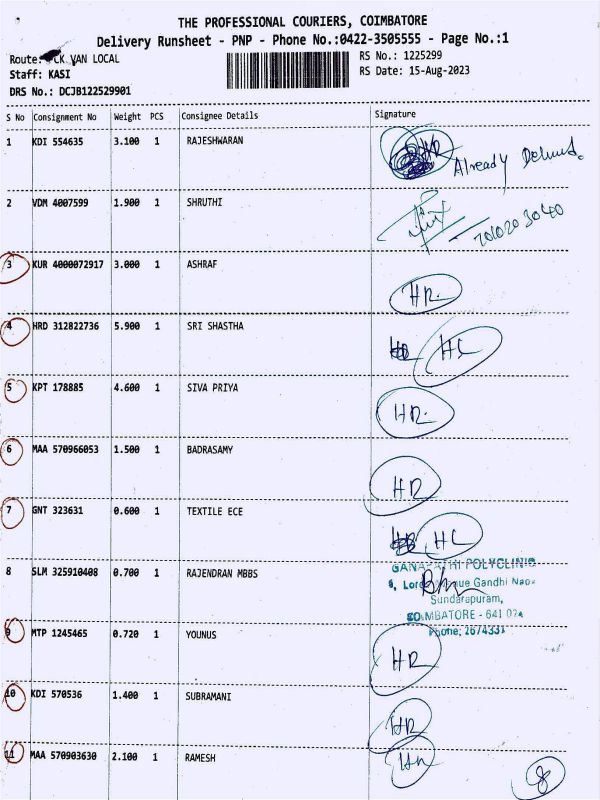 THE PROFESSIONAL COURIERS, COIMBATORE
Delivery Runsheet - PNP - Phone No.:0422-3505555 - Page No.:1
Route: CK VAN LOCAL
RS No.: 1225299
Staff: KASI
RS Date: 15-Aug-2023
DRS No.: DCJB122529901
S No Consignment No Weight PCS Consignee Details Signature
1 KDI 554635 3.100 1 RAJESHWARAN HR
Already
2 VDM 4007599 1.900 1 SHRUTHI
3 KUR 4000072917 3.000 1 ASHRAF HR.
4 HRD 312822736 5.900 1 SRI SHASTHA HL
5 KPT 178885 4.600 1 SIVA PRIYA HR.
6 MAA 570966053 1.500 1 BADRASAMY HR
7 GNT 323631 0.600 1 TEXTILE ECE HL
8 SLM 325910408 0.700 1 RAJENDRAN MBBS
POLYCLINIC
Gandhi
Sundarapuram,
COIMBATORE - 641 024
Phone: 2674331
9 MTP 1245465 0.720 1 YOUNUS HR
10 KDI 570536 1.400 1 SUBRAMANI HR
11 MAA 570903630 2.100 1 RAMESH HR
8